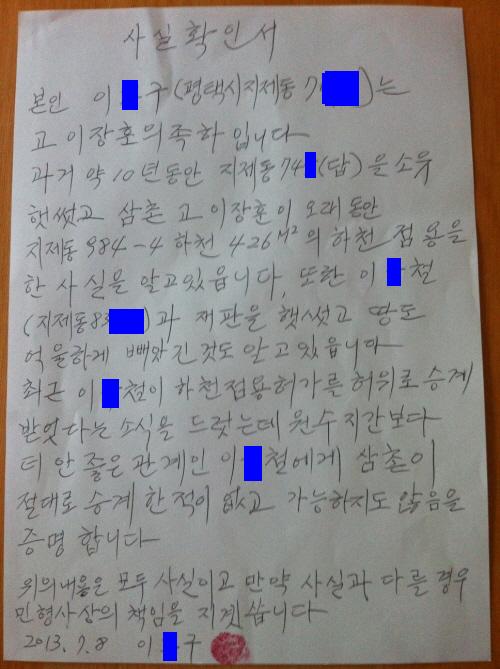 사실확인서
본인 이 구(평택시지제동 7 )는
고 이장훈의족하입니다
과거 약 10년동안 지제동74 (답)을소유
햇썼고 삼촌 고 이장훈이 오래동안
지제동984-4하천 426M²의 하천 점용을
한 사실을 알고있읍니다, 또한 이 철
(지제동83 )과 재판을 햇썼고 땅도
억울하게 빼앗긴것도 알고있읍니다
최근 이 철이 하천점용허가를 허위로 승계
받엇다는 소식을 드럿는데 원수지간보다
더 안 좋은 관계인 이 철에게 삼촌이
절대로 승계 한적이 없고 가능하지도 않음을
증명 합니다
위의내용은 모두 사실이고 만약 사실과 다를 경우
민형사상의 책임을 지겟씁니다
2013.7.8 이 구